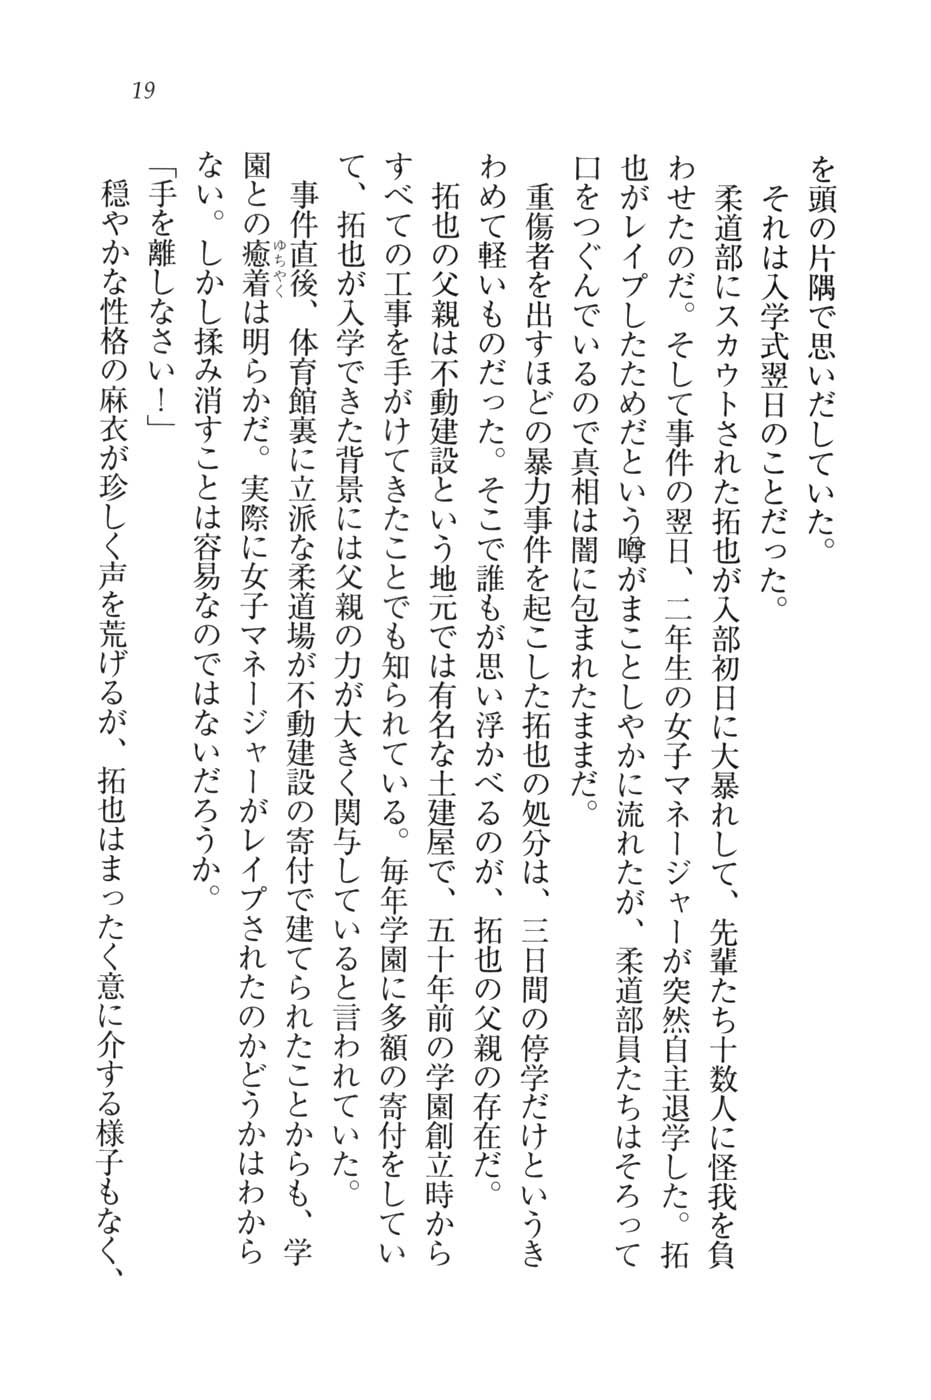 19
を頭の片隅で思いだしていた。
それは入学式翌日のことだった。
柔道部にスカウトされた拓也が入部初日に大暴れして、先輩たち十数人に怪我を負
わせたのだ。そして事件の翌日、二年生の女子マネージャーが突然自主退学した。拓
也がレイプしたためだという噂がまことしやかに流れたが、柔道部員たちはそろって
口をつぐんでいるので真相は闇に包まれたままだ。
重傷者を出すほどの暴力事件を起こした拓也の処分は、三日間の停学だけというき
わめて軽いものだった。そこで誰もが思い浮かべるのが、拓也の父親の存在だ。
拓也の父親は不動建設という地元では有名な土建屋で、五十年前の学園創立時から
すべての工事を手がけてきたことでも知られている。毎年学園に多額の寄付をしてい
て、拓也が入学できた背景には父親の力が大きく関与していると言われていた。
事件直後、体育館裏に立派な柔道場が不動建設の寄付で建てられたことからも、学
園との癒着ゆちゃくは明らかだ。実際に女子マネージャーがレイプされたのかどうかはわから
ない。しかし揉み消すことは容易なのではないだろうか。
「手を離しなさい！」
穏やかな性格の麻衣が珍しく声を荒げるが、拓也はまったく意に介する様子もなく、